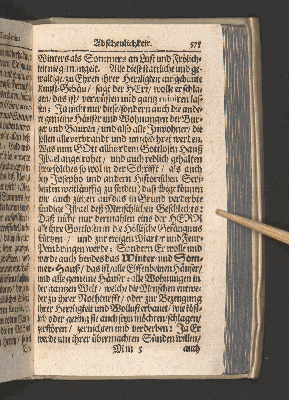 Abscheulichkeit. 571
Winters als Sommers an Lust und Frölich-
keit nie gemangelt. Alle diese stattliche und ge-
waltige zu Ehren ihrer Herligkeit auffgebaute
Kunst-Gebäu / sagt der HErr / wolle er schla-
gen / das ist / verwüsten und gantz ruiniren las-
sen; Ja nicht nur diese / sondern auch die ande-
re gemeine Häuser und Wohnungen der Bür-
ger und Bauren / und also alle Innwohner / die
sollen alle verderbt und umgekehret werden.
Was nun GOtt allhier dem Gottlosen Hauß
Israel angedrohet / und auch redlich gehalten
in der Schrifft / als auch
bey Josepho und andern Historischen Scri-
benten weitläufftig zu finden / daß
wir auch ziehen auf das in Grund verderbte
sündige Israel deß Menschlichen Geschlechts:
Daß nicht nur dermahlen eins der HERR
die Gottlosen in die Höllische Gefängnus
führen / und zur ewigen Marter und Feuer-
Pein bringen werde: Sondern Er wolle und
werde auch beydes das Winter- und Som-
mer-Hauß / das ist / alle Elffenbeinen Häuser /
und alle gemeine Häuser / alle Wohnungen in
der gantzen Welt / welche die Menschen entwe-
der zu ihrer Nothdurfft / oder zur Bezeugung
ihrer Herligkeit und Wollust erbauet / wie köst-
lich oder gering sie auch seyn möchten / schlagen /
zerstören / zernichten und verderben: Ja Er
werde um ihrer übermachten Sünden willen /
Mm 5 auch